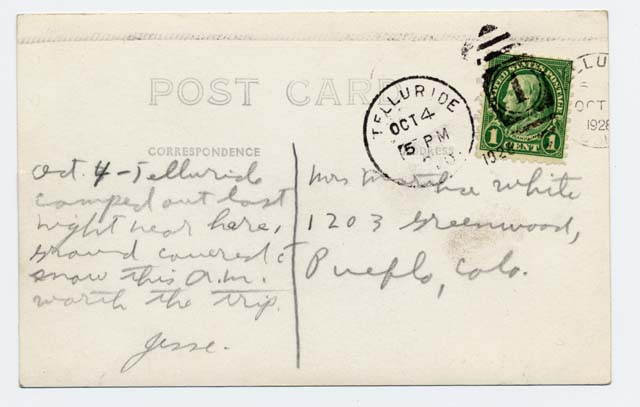 POST CARD
CORRESPONDENCE
ADDRESS
TELLURIDE
OCT 4
5 PM
UNITED STATES POSTAGE
1 CENT 1
TELLU
OCT
1928
Oct. 4 - Telluride
camped out last
night near here,
ground covered c
snow this a.m.
worth the trip.
Jesse.
Mrs Martha White
1203 Greenwood,
Pueblo, Colo.